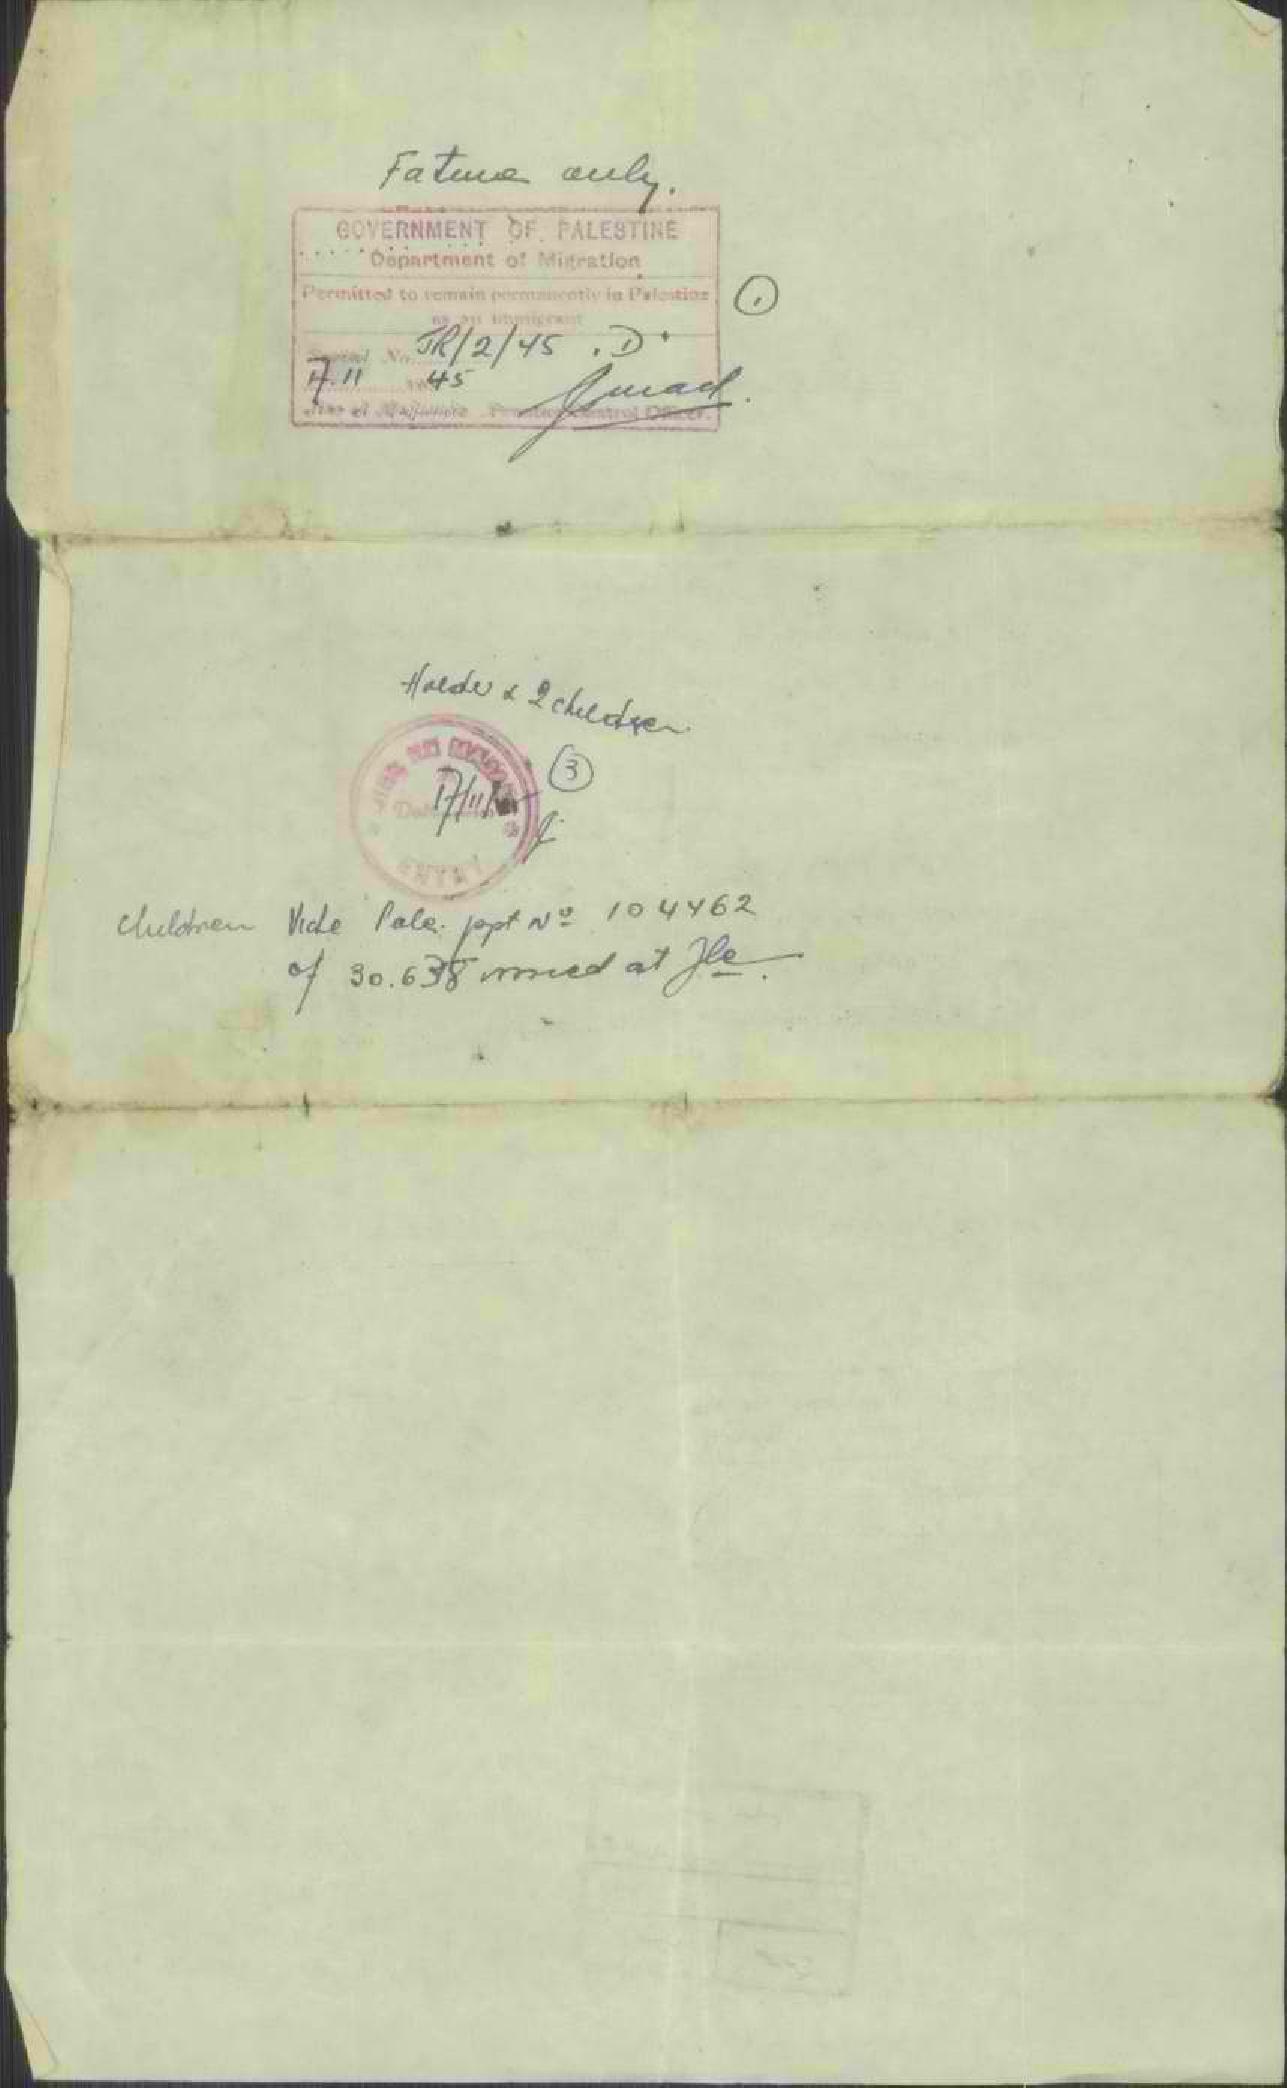 Fatma only.
GOVERNMENT OF PALESTINE
Department of Migration
Permitted to remain permanently in Palestine
as an immigrant
Serial No. JR/2/45 . D.
17.11 45
Jisr el Majamie Frontier Control Officer.
1
Holder & 2 children
3
17/11/
ENTRY
Children Vide Pale. ppt Nº 104462
of 30.6.38 issued at Jle.